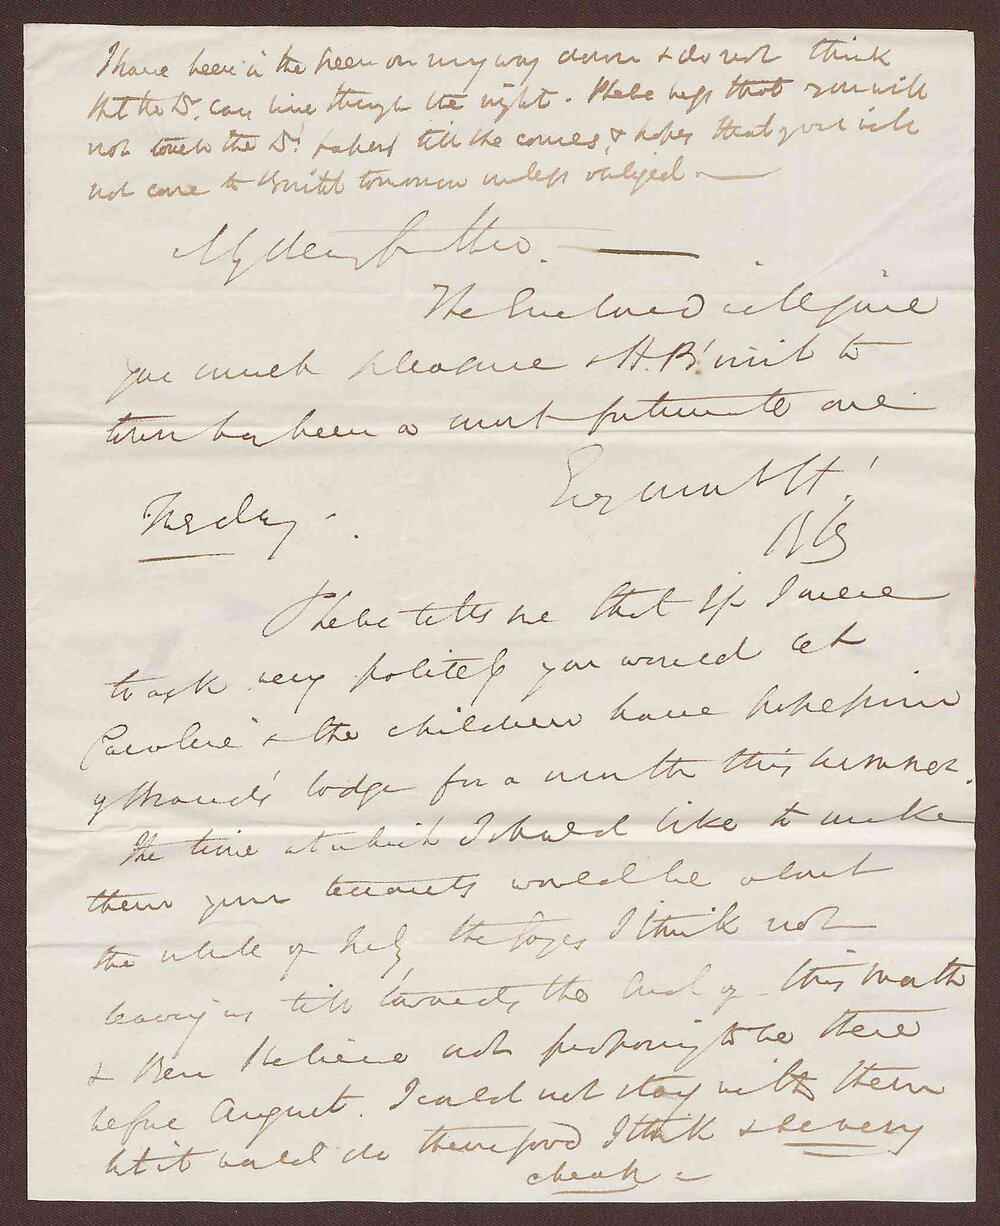 I have been in the room on my way down & do not think
that the Dr. can live through the night. Phebe begs that you will
not touch the Drs. papers till she comes, & hopes that you will
not come to tomorrow unless obliged.
My dear father.
The Enclosed will give
you much pleasure & H. B's visit to
town has been a most fortunate one
Tuesday.
Phebe tells me that if I were
to ask very politely you would let
Caroline & the children have possession
of lodge for a month this summer.
The time at which I should like to make
them your tenants would be about
the whole of July, the I think not
leaving us till towards the End of this Month
& Ben I believe not proposing to be there
before August. I could not stay with them
but it would do them good I think & be very
cheap